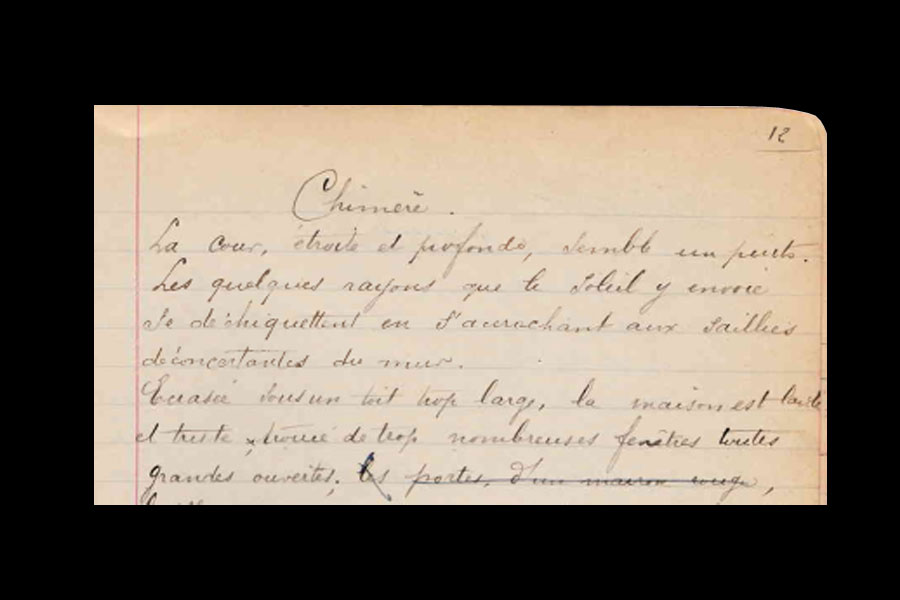 12
Chimère.
La cour, étroite et profonde, semble un puits.
Les quelques rayons que le soleil y envoie
se déchiquettent en s'accrochant aux saillies
déconcertantes du mur.
Ecrasée sous un toit trop large, la maison est laide
et triste, trouée de trop nombreuses fenêtres toutes
grandes ouvertes; les portes, d'un marron rouge,